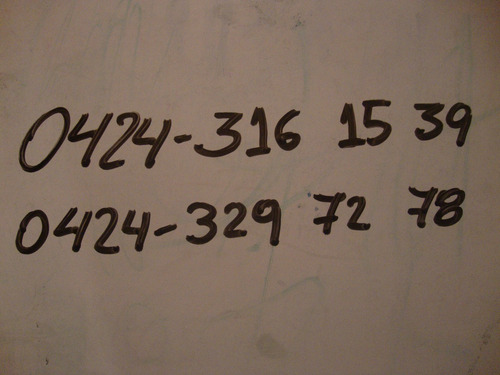 0424-316 15 39
0424-329 72 78